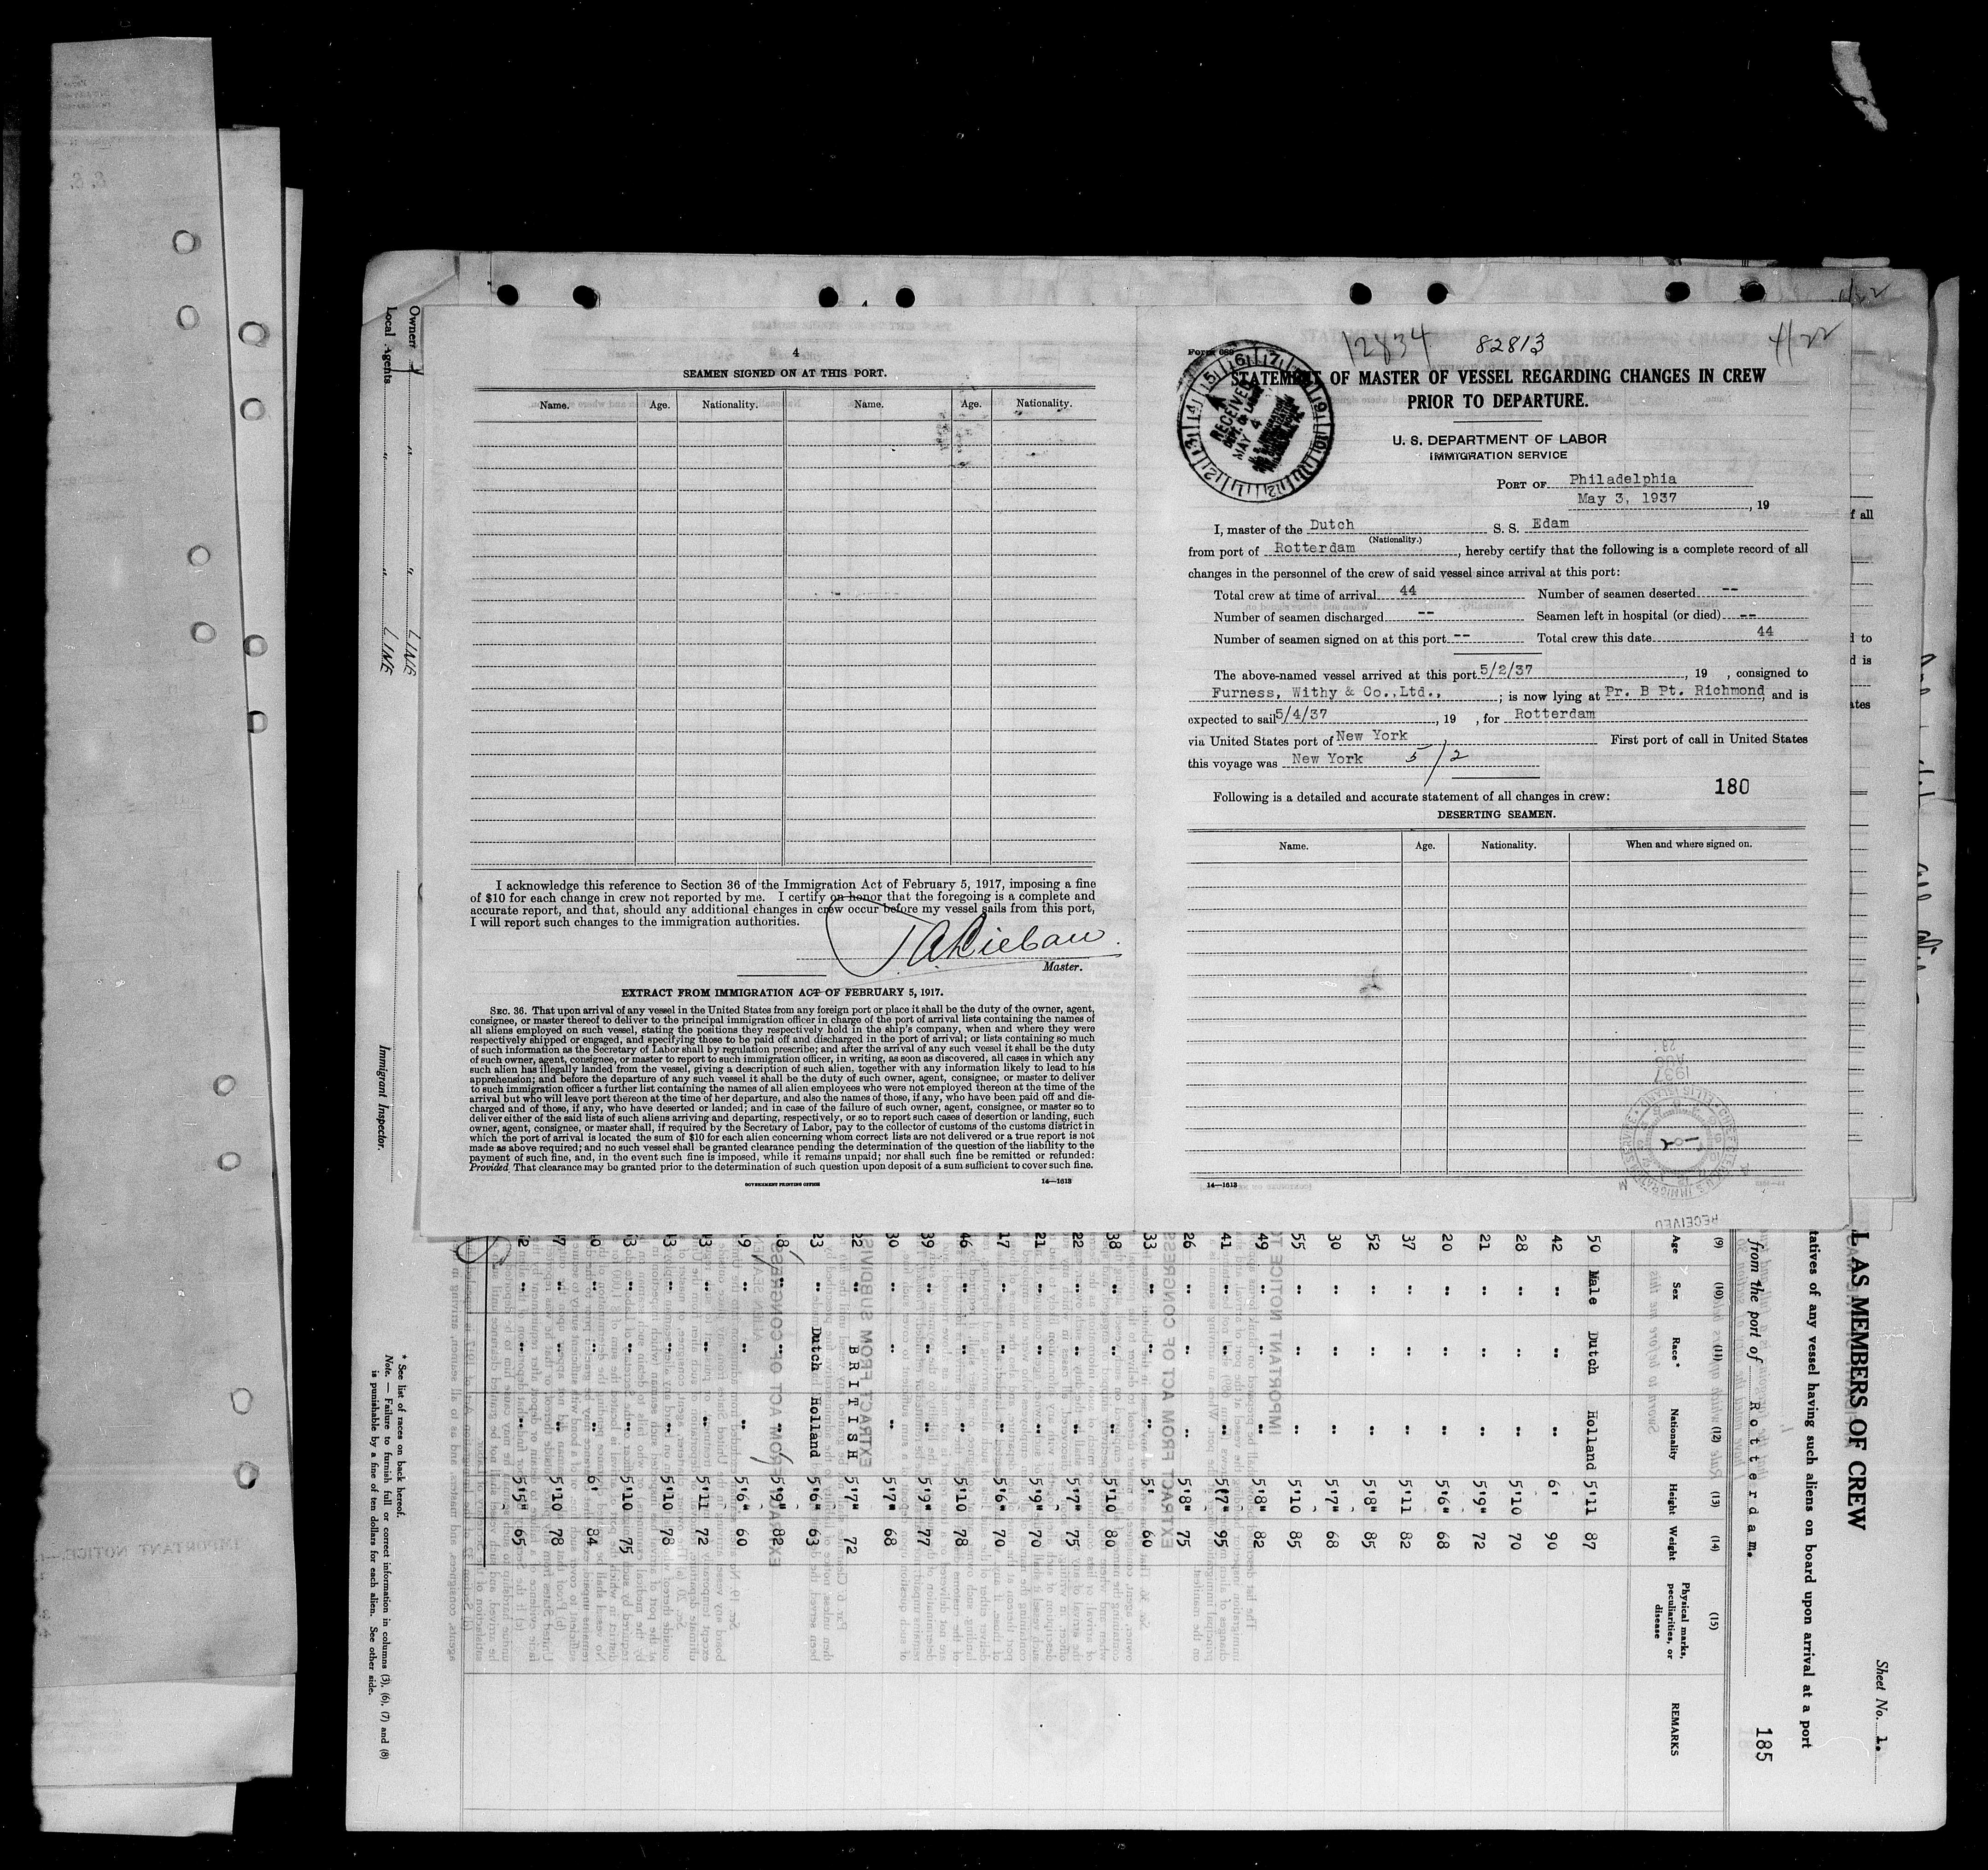 4
SEAMEN SIGNED ON AT THIS PORT.
Name. Age. Nationality. Name. Age. Nationality.
I acknowledge this reference to Section 36 of the Immigration Act of February 5, 1917, imposing a fine
of $10 for each change in crew not reported by me. I certify on honor that the foregoing is a complete and
accurate report, and that, should any additional changes in crew occur before my vessel sails from this port,
I will report such changes to the immigration authorities.
Master.
EXTRACT FROM IMMIGRATION ACT OF FEBRUARY 5, 1917.
SEC. 36. That upon arrival of any vessel in the United States from any foreign port or place it shall be the duty of the owner, agent,
consignee, or master thereof to deliver to the principal immigration officer in charge of the port of arrival lists containing the names of
all aliens employed on such vessel, stating the positions they respectively hold in the ship's company, when and where they were
respectively shipped or engaged, and specifying those to be paid off and discharged in the port of arrival; or lists containing so much
of such information as the Secretary of Labor shall by regulation prescribe; and after the arrival of any such vessel it shall be the duty
of such owner, agent, consignee, or master to report to such immigration officer, in writing, as soon as discovered, all cases in which any
such alien has illegally landed from the vessel, giving a description of such alien, together with any information likely to lead to his
apprehension; and before the departure of any such vessel it shall be the duty of such owner, agent, consignee, or master to deliver
to such immigration officer a further list containing the names of all alien employees who were not employed thereon at the time of the
arrival but who will leave port thereon at the time of her departure, and also the names of those, if any, who have been paid off and dis-
charged and of those, if any, who have deserted or landed; and in case of the failure of such owner, agent, consignee, or master so to
deliver either of the said lists of such aliens arriving and departing, respectively, or so to report such cases of desertion or landing, such
owner, agent, consignee, or master shall, if required by the Secretary of Labor, pay to the collector of customs of the customs district in
which the port of arrival is located the sum of $10 for each alien concerning whom correct lists are not delivered or a true report is not
made as above required; and no such vessel shall be granted clearance pending the determination of the question of the liability to the
payment of such fine, and, in the event such fine is imposed, while it remains unpaid; nor shall such fine be remitted or refunded:
Provided, That clearance may be granted prior to the determination of such question upon deposit of a sum sufficient to cover such fine.
GOVERNMENT PRINTING OFFICE 14—1613
12834 82813 4/22
Form 689
STATEMENT OF MASTER OF VESSEL REGARDING CHANGES IN CREW
PRIOR TO DEPARTURE.
RECEIVED
MAY 4
U. S. DEPARTMENT OF LABOR
IMMIGRATION SERVICE
PORT OF Philadelphia
May 3, 1937, 19
I, master of the Dutch S. S. Edam
(Nationality.)
from port of Rotterdam, hereby certify that the following is a complete record of all
changes in the personnel of the crew of said vessel since arrival at this port:
Total crew at time of arrival 44 Number of seamen deserted --
Number of seamen discharged -- Seamen left in hospital (or died) --
Number of seamen signed on at this port -- Total crew this date 44
The above-named vessel arrived at this port 5/2/37, 19 , consigned to
Furness, Withy & Co.,Ltd., ; is now lying at Pr. B Pt. Richmond and is
expected to sail 5/4/37, 19 , for Rotterdam
via United States port of New York First port of call in United States
this voyage was New York 5/2
180
Following is a detailed and accurate statement of all changes in crew:
DESERTING SEAMEN.
Name. Age. Nationality. When and where signed on.
14—1613
Owners " " LINE
Local Agents " " LINE
Immigrant Inspector.
* See list of races on back hereof.
Note. — Failure to furnish full or correct information in columns (3), (6), (7) and (8)
is punishable by a fine of ten dollars for each alien. See other side.
Sheet No. 1.
L AS MEMBERS OF CREW
tatives of any vessel having such aliens on board upon arrival at a port
from the port of Rotterdam.
185
(9) (10) (11) (12) (13) (14) (15)
Age Sex Race* Nationality Height Weight Physical marks, peculiarities, or disease REMARKS
50 Male Dutch Holland 5'11 87
42 " " " 6' 90
28 " " " 5'10 70
21 " " " 5'9" 72
20 " " " 5'6" 68
37 " " " 5'11 82
52 " " " 5'8" 85
30 " " " 5'7" 68
55 " " " 5'10 85
49 " " " 5'8" 82
41 " " " 5'7" 95
26 " " " 5'8" 75
33 " " " 5' 60
38 " " " 5'10 80
22 " " " 5'7" 75
21 " " " 5'9" 70
17 " " " 5'6" 70
46 " " " 5'10 78
39 " " " 5'9" 77
30 " " " 5'7" 68
22 " BRITISH 5'7" 72
23 " Dutch Holland 5'6" 63
" " " 5'9" 82
" " " 5'6" 60
" " " 5'11 72
" " " 5'10 78
" " " 5'10 75
" " " 6' 84
" " " 5'10 78
" " " 5'5" 65